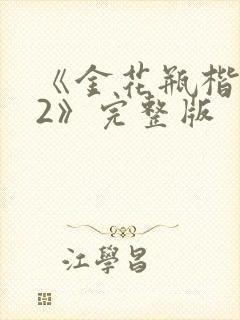 《金花瓶楷
2》完整版
江學昌